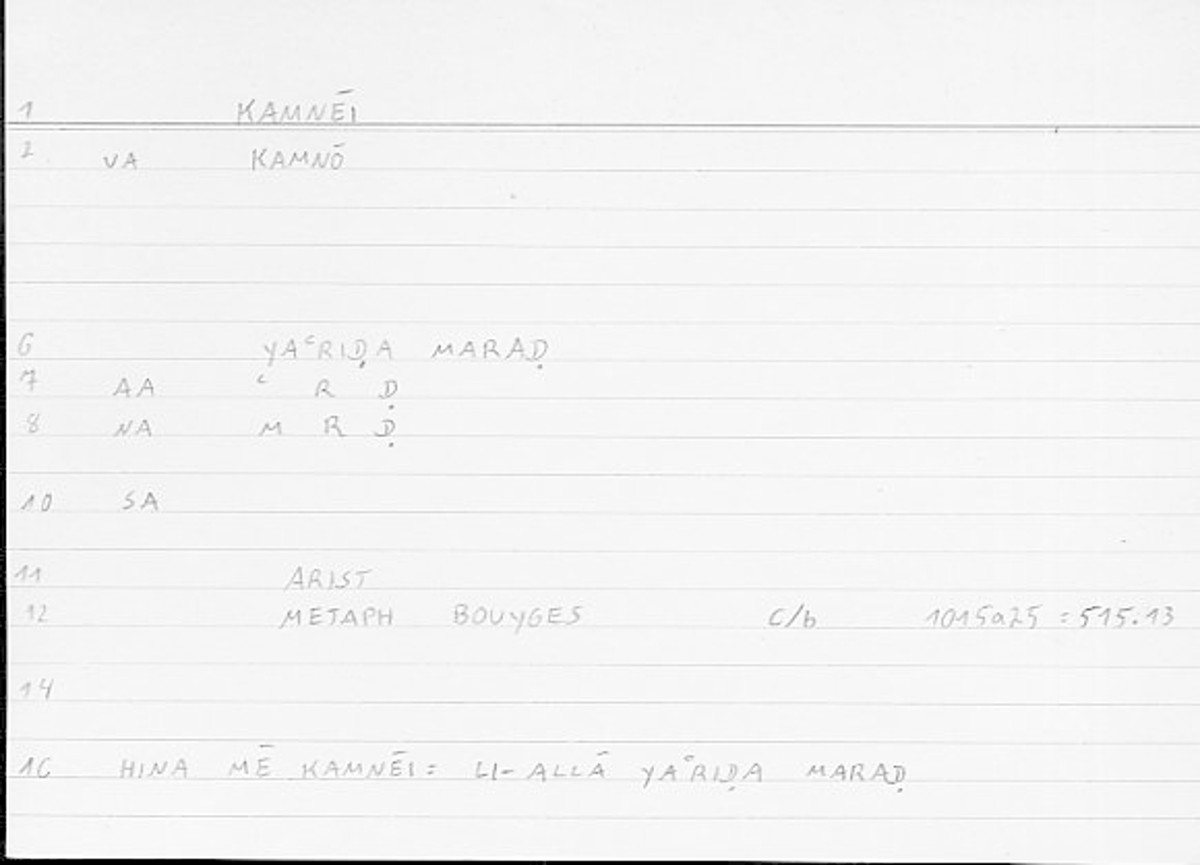 1 KAMNĒI
2 VA KAMNŌ
6 YAʿRIḌA MARAḌ
7 AA ʿ R Ḍ
8 NA M R Ḍ
10 SA
11 ARIST
12 METAPH BOUYGES C/b 1015a25 = 515.13
14
16 HINA MĒ KAMNĒI = LI-ALLĀ YAʿRIḌA MARAḌ